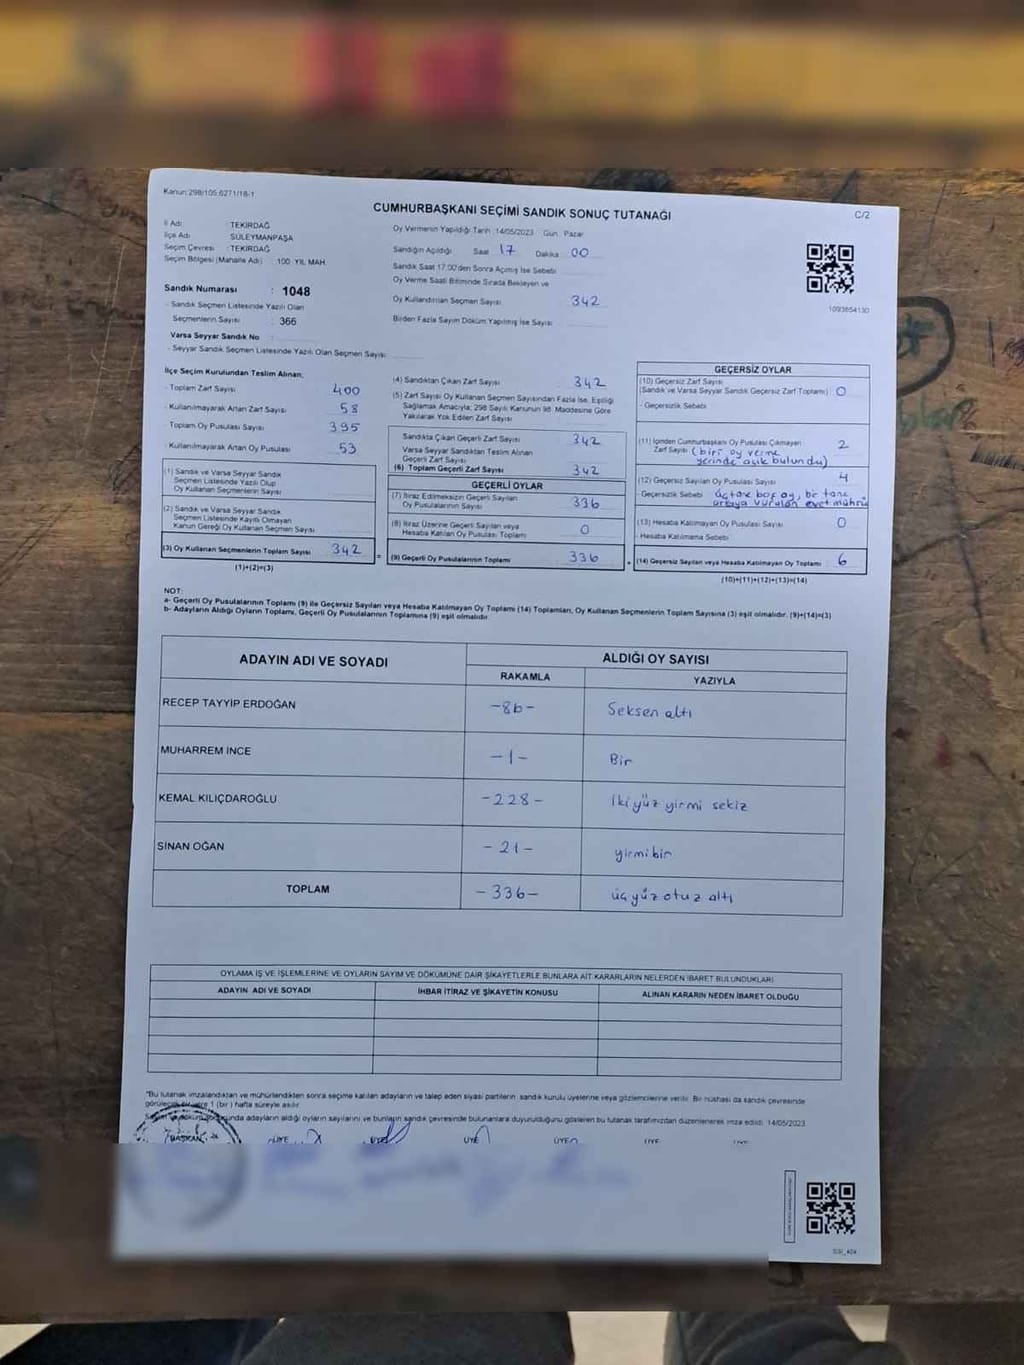 Kanun:298/105;6271/18-1
CUMHURBAŞKANI SEÇİMİ SANDIK SONUÇ TUTANAĞI
C/2
İl Adı : TEKİRDAĞ
İlçe Adı : SÜLEYMANPAŞA
Seçim Çevresi : TEKİRDAĞ
Seçim Bölgesi (Mahalle Adı) : 100. YIL MAH.
Oy Vermenin Yapıldığı Tarih : 14/05/2023 Gün : Pazar
Sandığın Açıldığı Saat 17 Dakika 00
Sandık Saat 17.00'den Sonra Açılmış İse Sebebi
Oy Verme Saati Bitiminde Sırada Bekleyen ve
Oy Kullandırılan Seçmen Sayısı 342
Birden Fazla Sayım Döküm Yapılmış İse Sayısı
1093654130
Sandık Numarası : 1048
- Sandık Seçmen Listesinde Yazılı Olan
Seçmenlerin Sayısı : 366
Varsa Seyyar Sandık No
- Seyyar Sandık Seçmen Listesinde Yazılı Olan Seçmen Sayısı
İlçe Seçim Kurulundan Teslim Alınan;
- Toplam Zarf Sayısı 400
- Kullanılmayarak Artan Zarf Sayısı 58
Toplam Oy Pusulası Sayısı 395
- Kullanılmayarak Artan Oy Pusulası 53
(1) Sandık ve Varsa Seyyar Sandık
Seçmen Listesinde Yazılı Olup
Oy Kullanan Seçmen Sayısı
(2) Sandık ve Varsa Seyyar Sandık
Seçmen Listesinde Kayıtlı Olmayan
Kanun Gereği Oy Kullanan Seçmen Sayısı
(3) Oy Kullanan Seçmenlerin Toplam Sayısı 342
(1)+(2)=(3)
(4) Sandıktan Çıkan Zarf Sayısı 342
(5) Zarf Sayısı Oy Kullanan Seçmen Sayısından Fazla ise, Eşitliği
Sağlamak Amacıyla; 298 Sayılı Kanunun 98. Maddesine Göre
Yakılarak Yok Edilen Zarf Sayısı
Sandıkta Çıkan Geçerli Zarf Sayısı 342
Varsa Seyyar Sandıktan Teslim Alınan
Geçerli Zarf Sayısı
(6) Toplam Geçerli Zarf Sayısı 342
GEÇERLİ OYLAR
(7) İtiraz Edilmeksizin Geçerli Sayılan
Oy Pusulasının Sayısı 336
(8) İtiraz Üzerine Geçerli Sayılan veya
Hesaba Katılan Oy Pusulası Toplamı 0
(9) Geçerli Oy Pusulalarının Toplamı 336
GEÇERSİZ OYLAR
(10) Geçersiz Zarf Sayısı
(Sandık ve Varsa Seyyar Sandık Geçersiz Zarf Toplamı) 0
- Geçersizlik Sebebi
(11) İçinden Cumhurbaşkanı Oy Pusulası Çıkmayan 2
Zarf Sayısı (biri oy verme
yerinde açık bulundu)
(12) Geçersiz Sayılan Oy Pusulası Sayısı 4
- Geçersizlik Sebebi üç tane boş oy, bir tane
araya vurulan evet mührü
(13) Hesaba Katılmayan Oy Pusulası Sayısı 0
- Hesaba Katılmama Sebebi
(14) Geçersiz Sayılan veya Hesaba Katılmayan Oy Toplamı 6
(10)+(11)+(12)+(13)=(14)
NOT:
a- Geçerli Oy Pusulalarının Toplamı (9) ile Geçersiz Sayılan veya Hesaba Katılmayan Oy Toplamı (14) Toplamları, Oy Kullanan Seçmenlerin Toplam Sayısına (3) eşit olmalıdır. (9)+(14)=(3)
b- Adayların Aldığı Oyların Toplamı, Geçerli Oy Pusulalarının Toplamına (9) eşit olmalıdır.
ADAYIN ADI VE SOYADI
ALDIĞI OY SAYISI
RAKAMLA YAZIYLA
RECEP TAYYİP ERDOĞAN -86- Seksen altı
MUHARREM İNCE -1- Bir
KEMAL KILIÇDAROĞLU -228- İkiyüz yirmi sekiz
SİNAN OĞAN -21- yirmibir
TOPLAM -336- üçyüz otuz altı
OYLAMA İŞ VE İŞLEMLERİNE VE OYLARIN SAYIM VE DÖKÜMÜNE DAİR ŞİKAYETLERLE BUNLARA AİT KARARLARIN NELERDEN İBARET BULUNDUKLARI
ADAYIN ADI VE SOYADI İHBAR İTİRAZ VE ŞİKAYETİN KONUSU ALINAN KARARIN NEDEN İBARET OLDUĞU
"Bu tutanak imzalandıktan ve mühürlendikten sonra seçime katılan adayların ve talep eden siyasi partilerin sandık kurulu üyelerine veya gözlemcilerine verilir. Bir nüshası da sandık çevresinde
görülecek bir yere 1 (bir) hafta süreyle asılır.
Sayım ve döküm sonucunda adayların aldığı oyların sayılarını ve bunların sandık çevresinde bulunanlara duyurulduğunu gösteren bu tutanak tarafımızdan düzenlenerek imza edildi. 14/05/2023
BAŞKAN ÜYE ÜYE ÜYE ÜYE ÜYE ÜYE